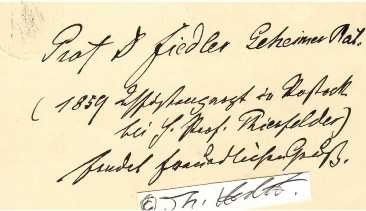 Prof Dr Fiedler Geheimer Rat.
(1859 Assistenzarzt in Rostock
bei H. Prof. Thierfelder)
sendet freundlichen Gruß.